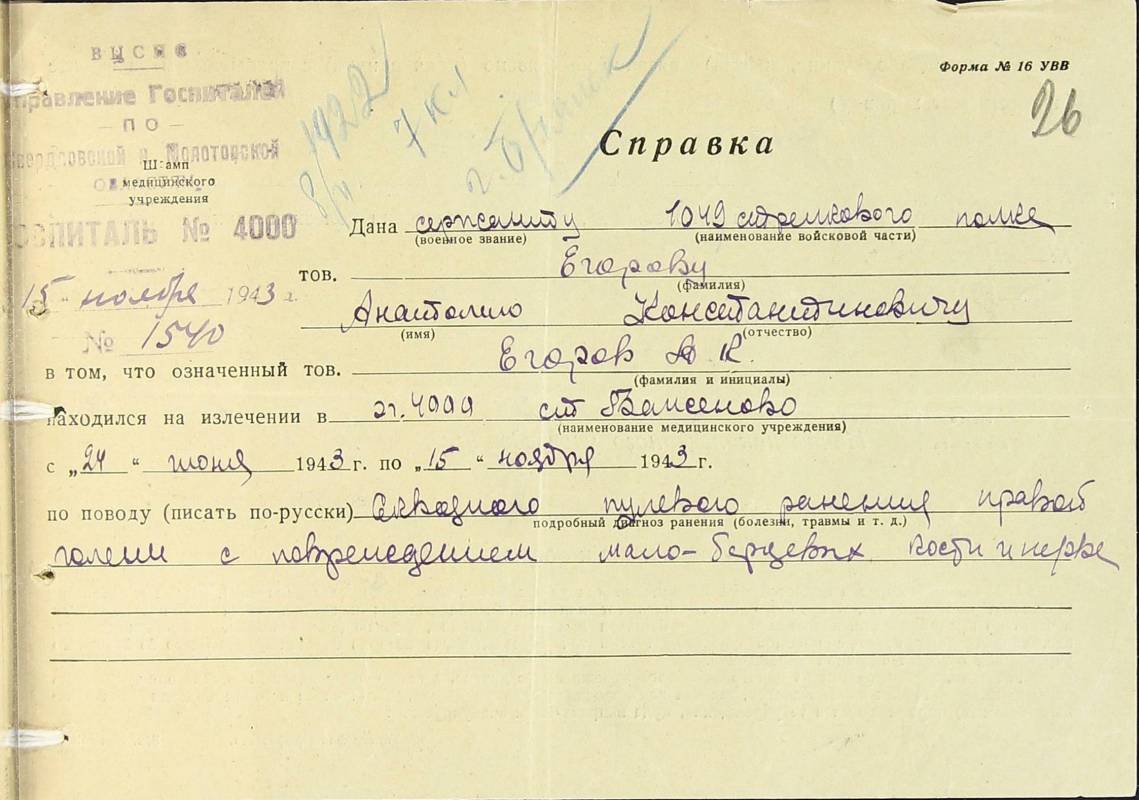 Форма № 16 УВВ
26
1922
7 кл
Справка
Управление Госпиталей
— ПО —
Свердловской и Молотовской
Штамп
медицинского
учреждения
ГОСПИТАЛЬ № 4000
Дана сержанту 1049 стрелкового полка
(военное звание) (наименование войсковой части)
тов. Егорову
(фамилия)
15 ноября 1943 г.
Анатолию Константиновичу
(имя) (отчество)
№ 1540
в том, что означенный тов. Егоров А К.
(фамилия и инициалы)
находился на излечении в эг. 4000 ст Баженово
(наименование медицинского учреждения)
с „24“ июня 1943 г. по „15“ ноября 1943 г.
по поводу (писать по-русски) Сквозного пулевого ранения правой
подробный диагноз ранения (болезни, травмы и т. д.)
голени с повреждением мало-берцевых кости и нерва